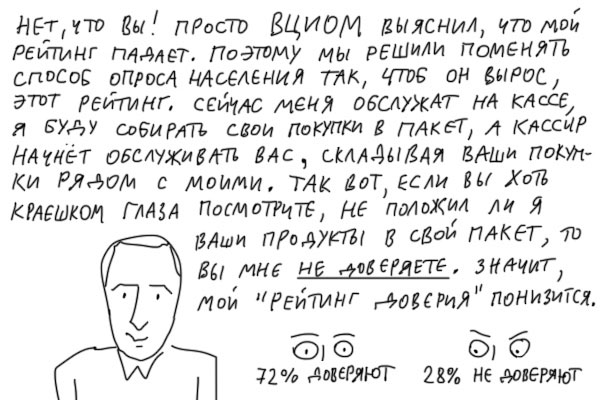 НЕТ, ЧТО ВЫ! ПРОСТО ВЦИОМ ВЫЯСНИЛ, ЧТО МОЙ
РЕЙТИНГ ПАДАЕТ. ПОЭТОМУ МЫ РЕШИЛИ ПОМЕНЯТЬ
СПОСОБ ОПРОСА НАСЕЛЕНИЯ ТАК, ЧТОБ ОН ВЫРОС,
ЭТОТ РЕЙТИНГ. СЕЙЧАС МЕНЯ ОБСЛУЖАТ НА КАССЕ,
Я БУДУ СОБИРАТЬ СВОИ ПОКУПКИ В ПАКЕТ, А КАССИР
НАЧНЁТ ОБСЛУЖИВАТЬ ВАС, СКЛАДЫВАЯ ВАШИ ПОКУП-
КИ РЯДОМ С МОИМИ. ТАК ВОТ, ЕСЛИ ВЫ ХОТЬ
КРАЕШКОМ ГЛАЗА ПОСМОТРИТЕ, НЕ ПОЛОЖИЛ ЛИ Я
ВАШИ ПРОДУКТЫ В СВОЙ ПАКЕТ, ТО
ВЫ МНЕ НЕ ДОВЕРЯЕТЕ. ЗНАЧИТ,
МОЙ "РЕЙТИНГ ДОВЕРИЯ" ПОНИЗИТСЯ.
72% ДОВЕРЯЮТ 28% НЕ ДОВЕРЯЮТ